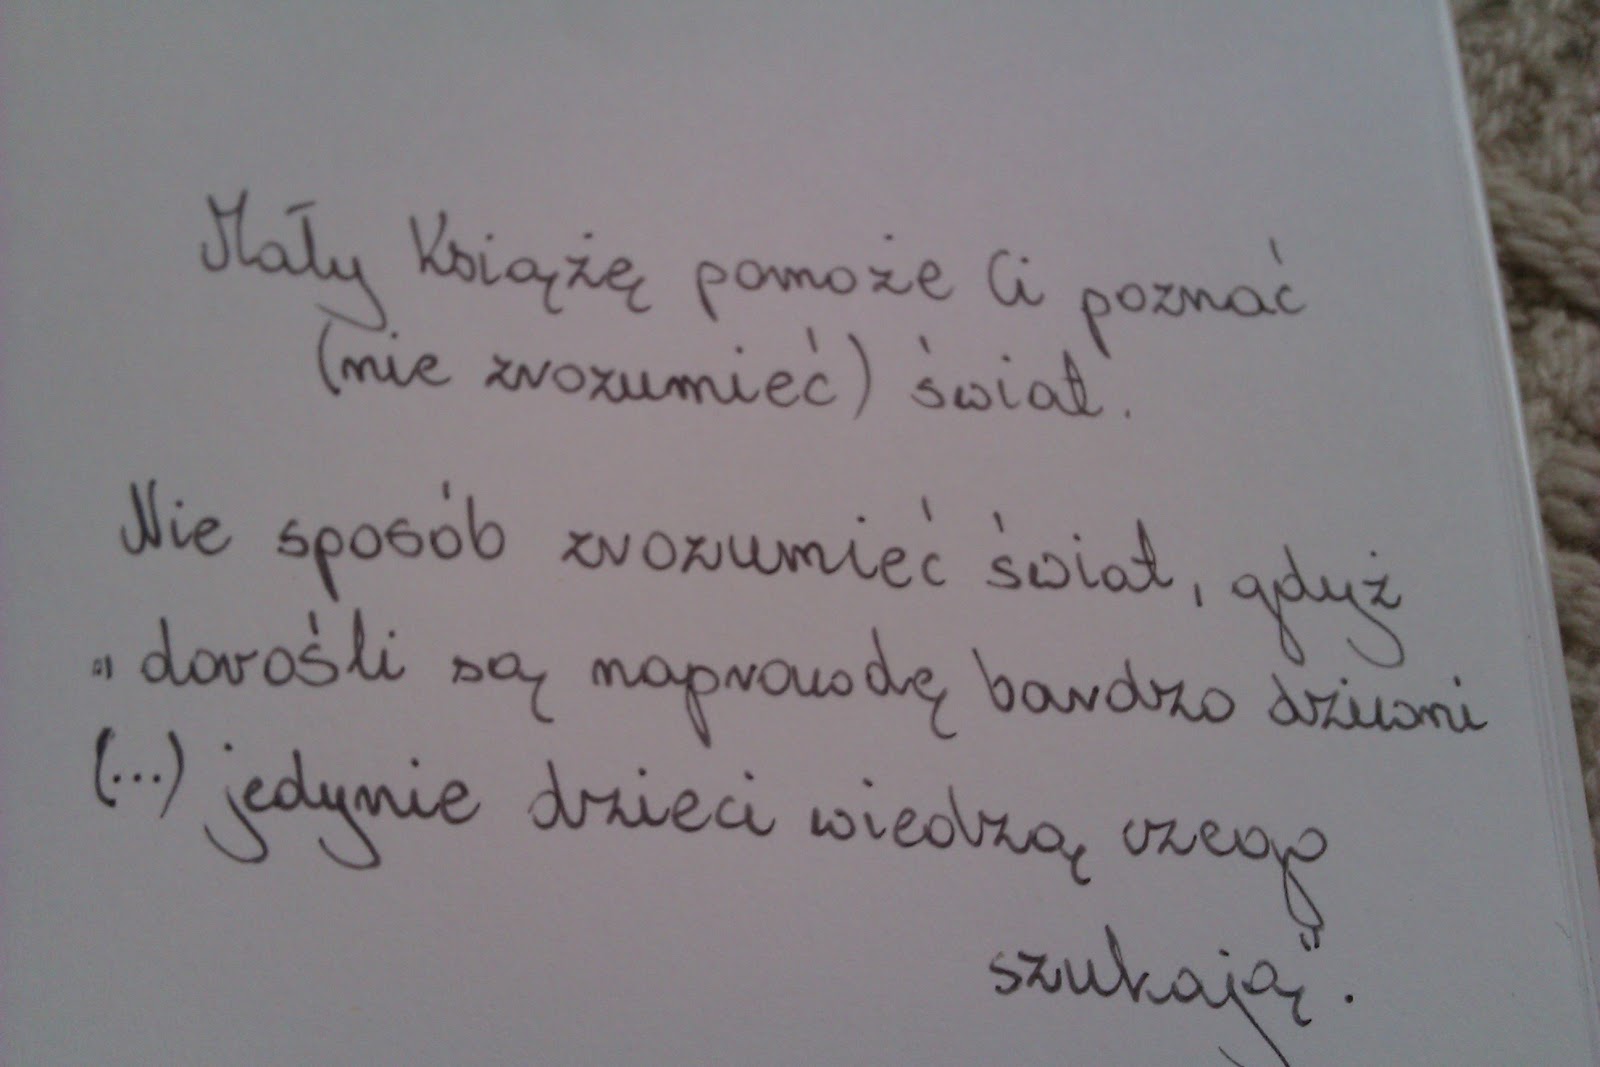 Mały Książę pomoże Ci poznać
(nie zrozumieć) świat.
Nie sposób zrozumieć świat, gdyż
„dorośli są naprawdę bardzo dziwni
(...) jedynie dzieci wiedzą czego
szukają".